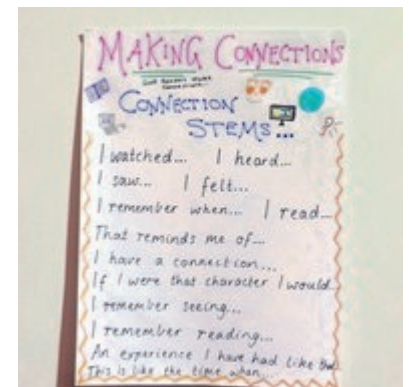 MAKING CONNECTIONS
GOOD READERS MAKE CONNECTIONS...
CONNECTION
STEMS...
I watched... I heard...
I saw... I felt...
I remember when... I read...
That reminds me of...
I have a connection...
If I were that character I would...
I remember seeing...
I remember reading...
An experience I have had like
This is like the time when...